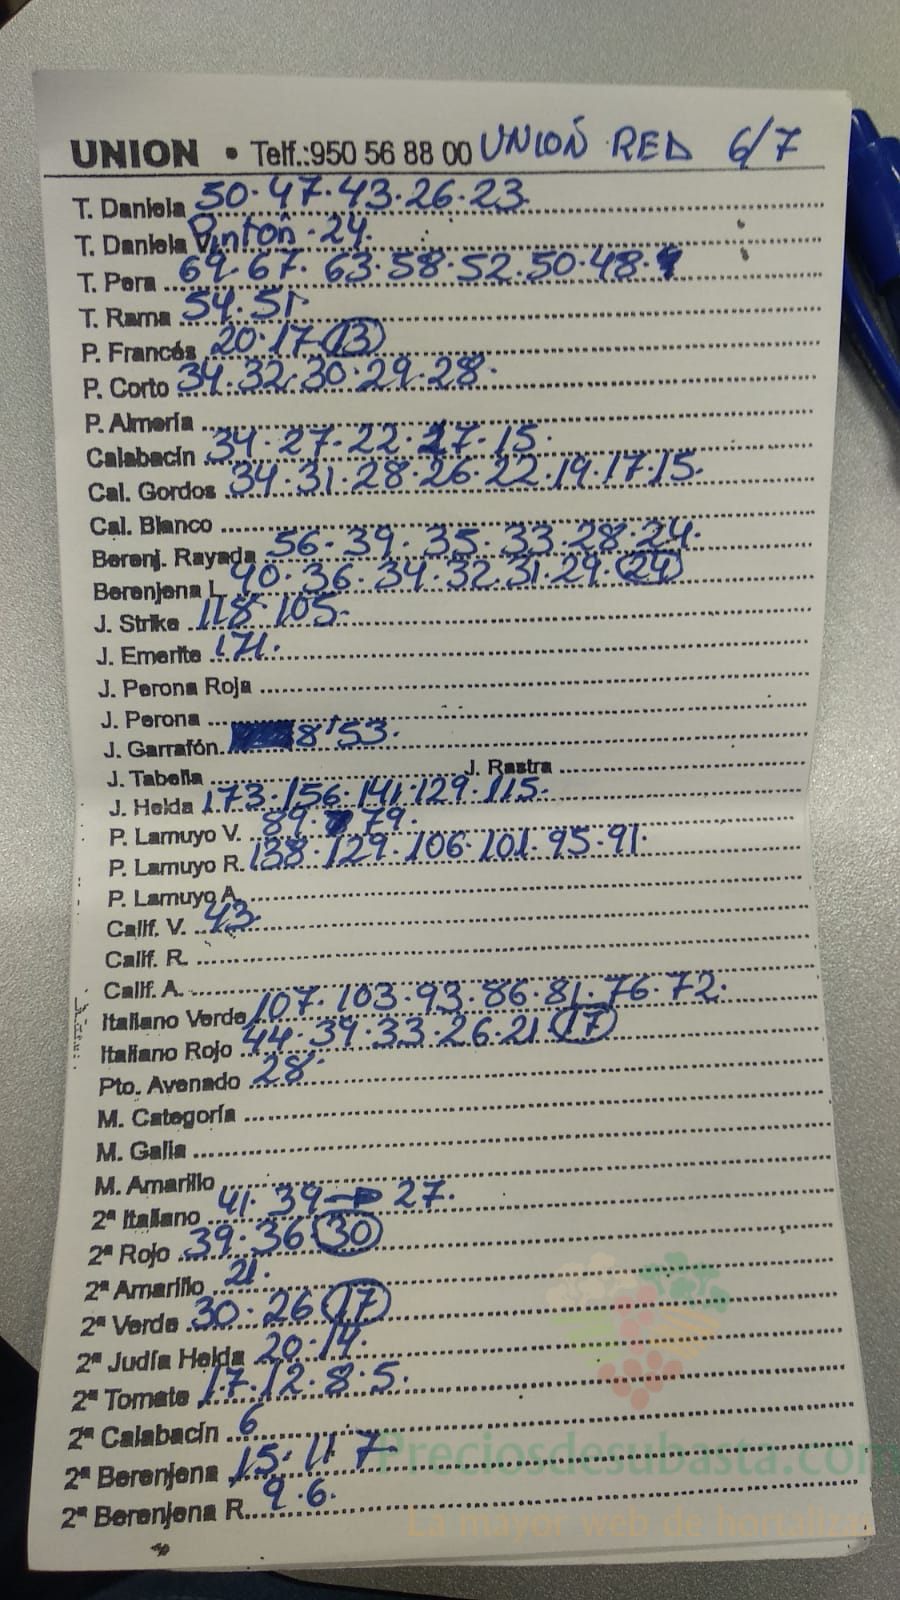 UNION • Telf.:950 56 88 00 UNIOÑ RED 6/7
T. Daniela 50·47·43·26·23
T. Daniela V. Pintoñ·24.
T. Pera 69·67·63·58·52·50·48·
T. Rama 54·51
P. Francés 20·17·13
P. Corto 34·32·30·29·28·
P. Almería
Calabacín 34·27·22·27·15·
Cal. Gordos 34·31·28·26·22·19·17·15·
Cal. Blanco
Berenj. Rayada 56·39·35·33·28·24·
Berenjena L 40·36·34·32·31·29·24
J. Strike 118·105·
J. Emerite 171·
J. Perona Roja
J. Perona
J. Garrafón 8'53·
J. Tabella J. Rastra
J. Helda 173·156·141·129·115·
P. Lamuyo V. 89·79·
P. Lamuyo R. 138·129·106·101·95·91·
P. Lamuyo A.
Calif. V. 43·
Calif. R.
Calif. A.
Italiano Verde 107·103·93·86·81·76·72·
Italiano Rojo 44·39·33·26·21·17
Pto. Avenado 28·
M. Categoría
M. Galia
M. Amarillo
2ª Italiano 41·39→27·
2ª Rojo 39·36 30
2ª Amarillo 21·
2ª Verde 30·26 17
2ª Judía Helda 20·14·
2ª Tomate 17·12·8·5·
2ª Calabacín 6
2ª Berenjena 15·11·7
Preciosdesubasta.com
2ª Berenjena R. 9·6·
La mayor web de hortalizas